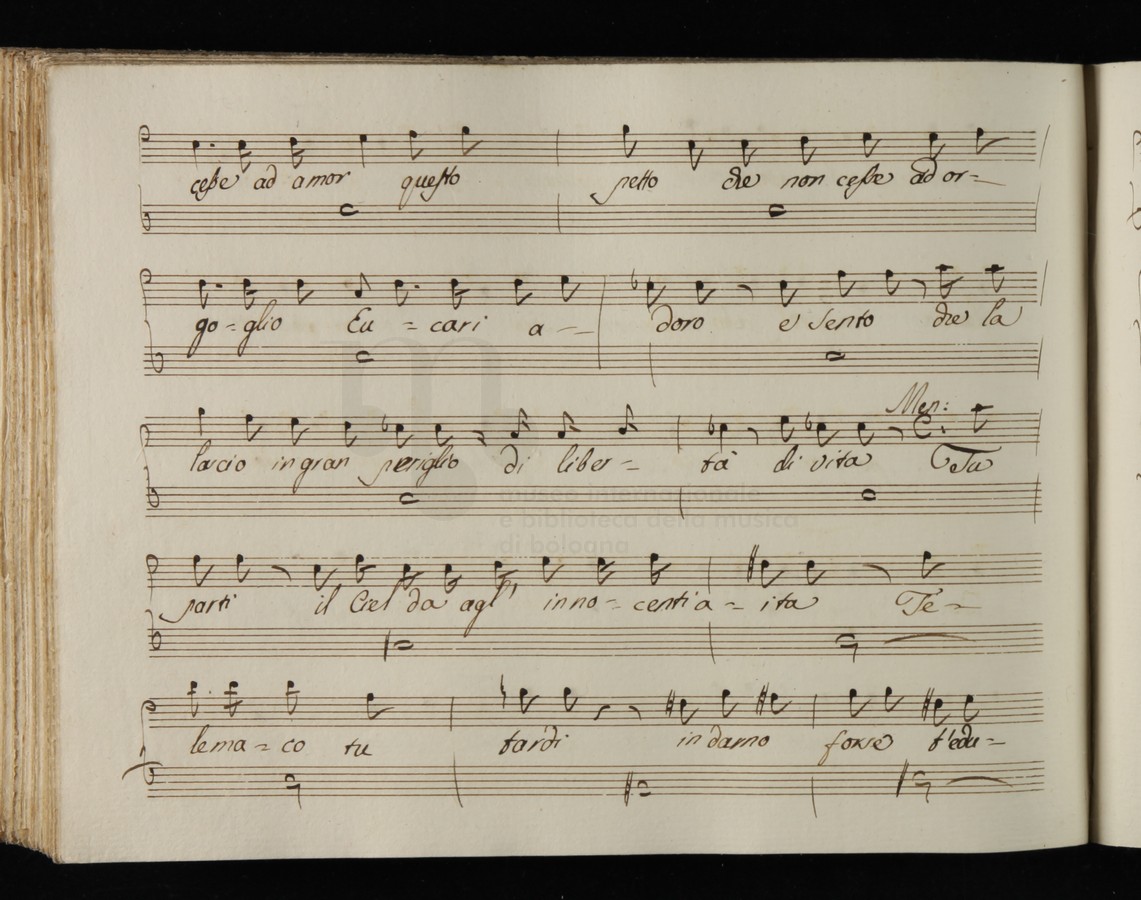 ceße ad amor questo petto che non ceße ad or=
go=glio Eu=cari a= doro e sento che la
Men:
lascio in gran periglio di liber=tà di vita Tu
parti il Ciel da agl' inno=centi a=ita Te=
lema=co tu tardi indarno forse t'edu=
museo internazionale
e biblioteca della musica
di bologna